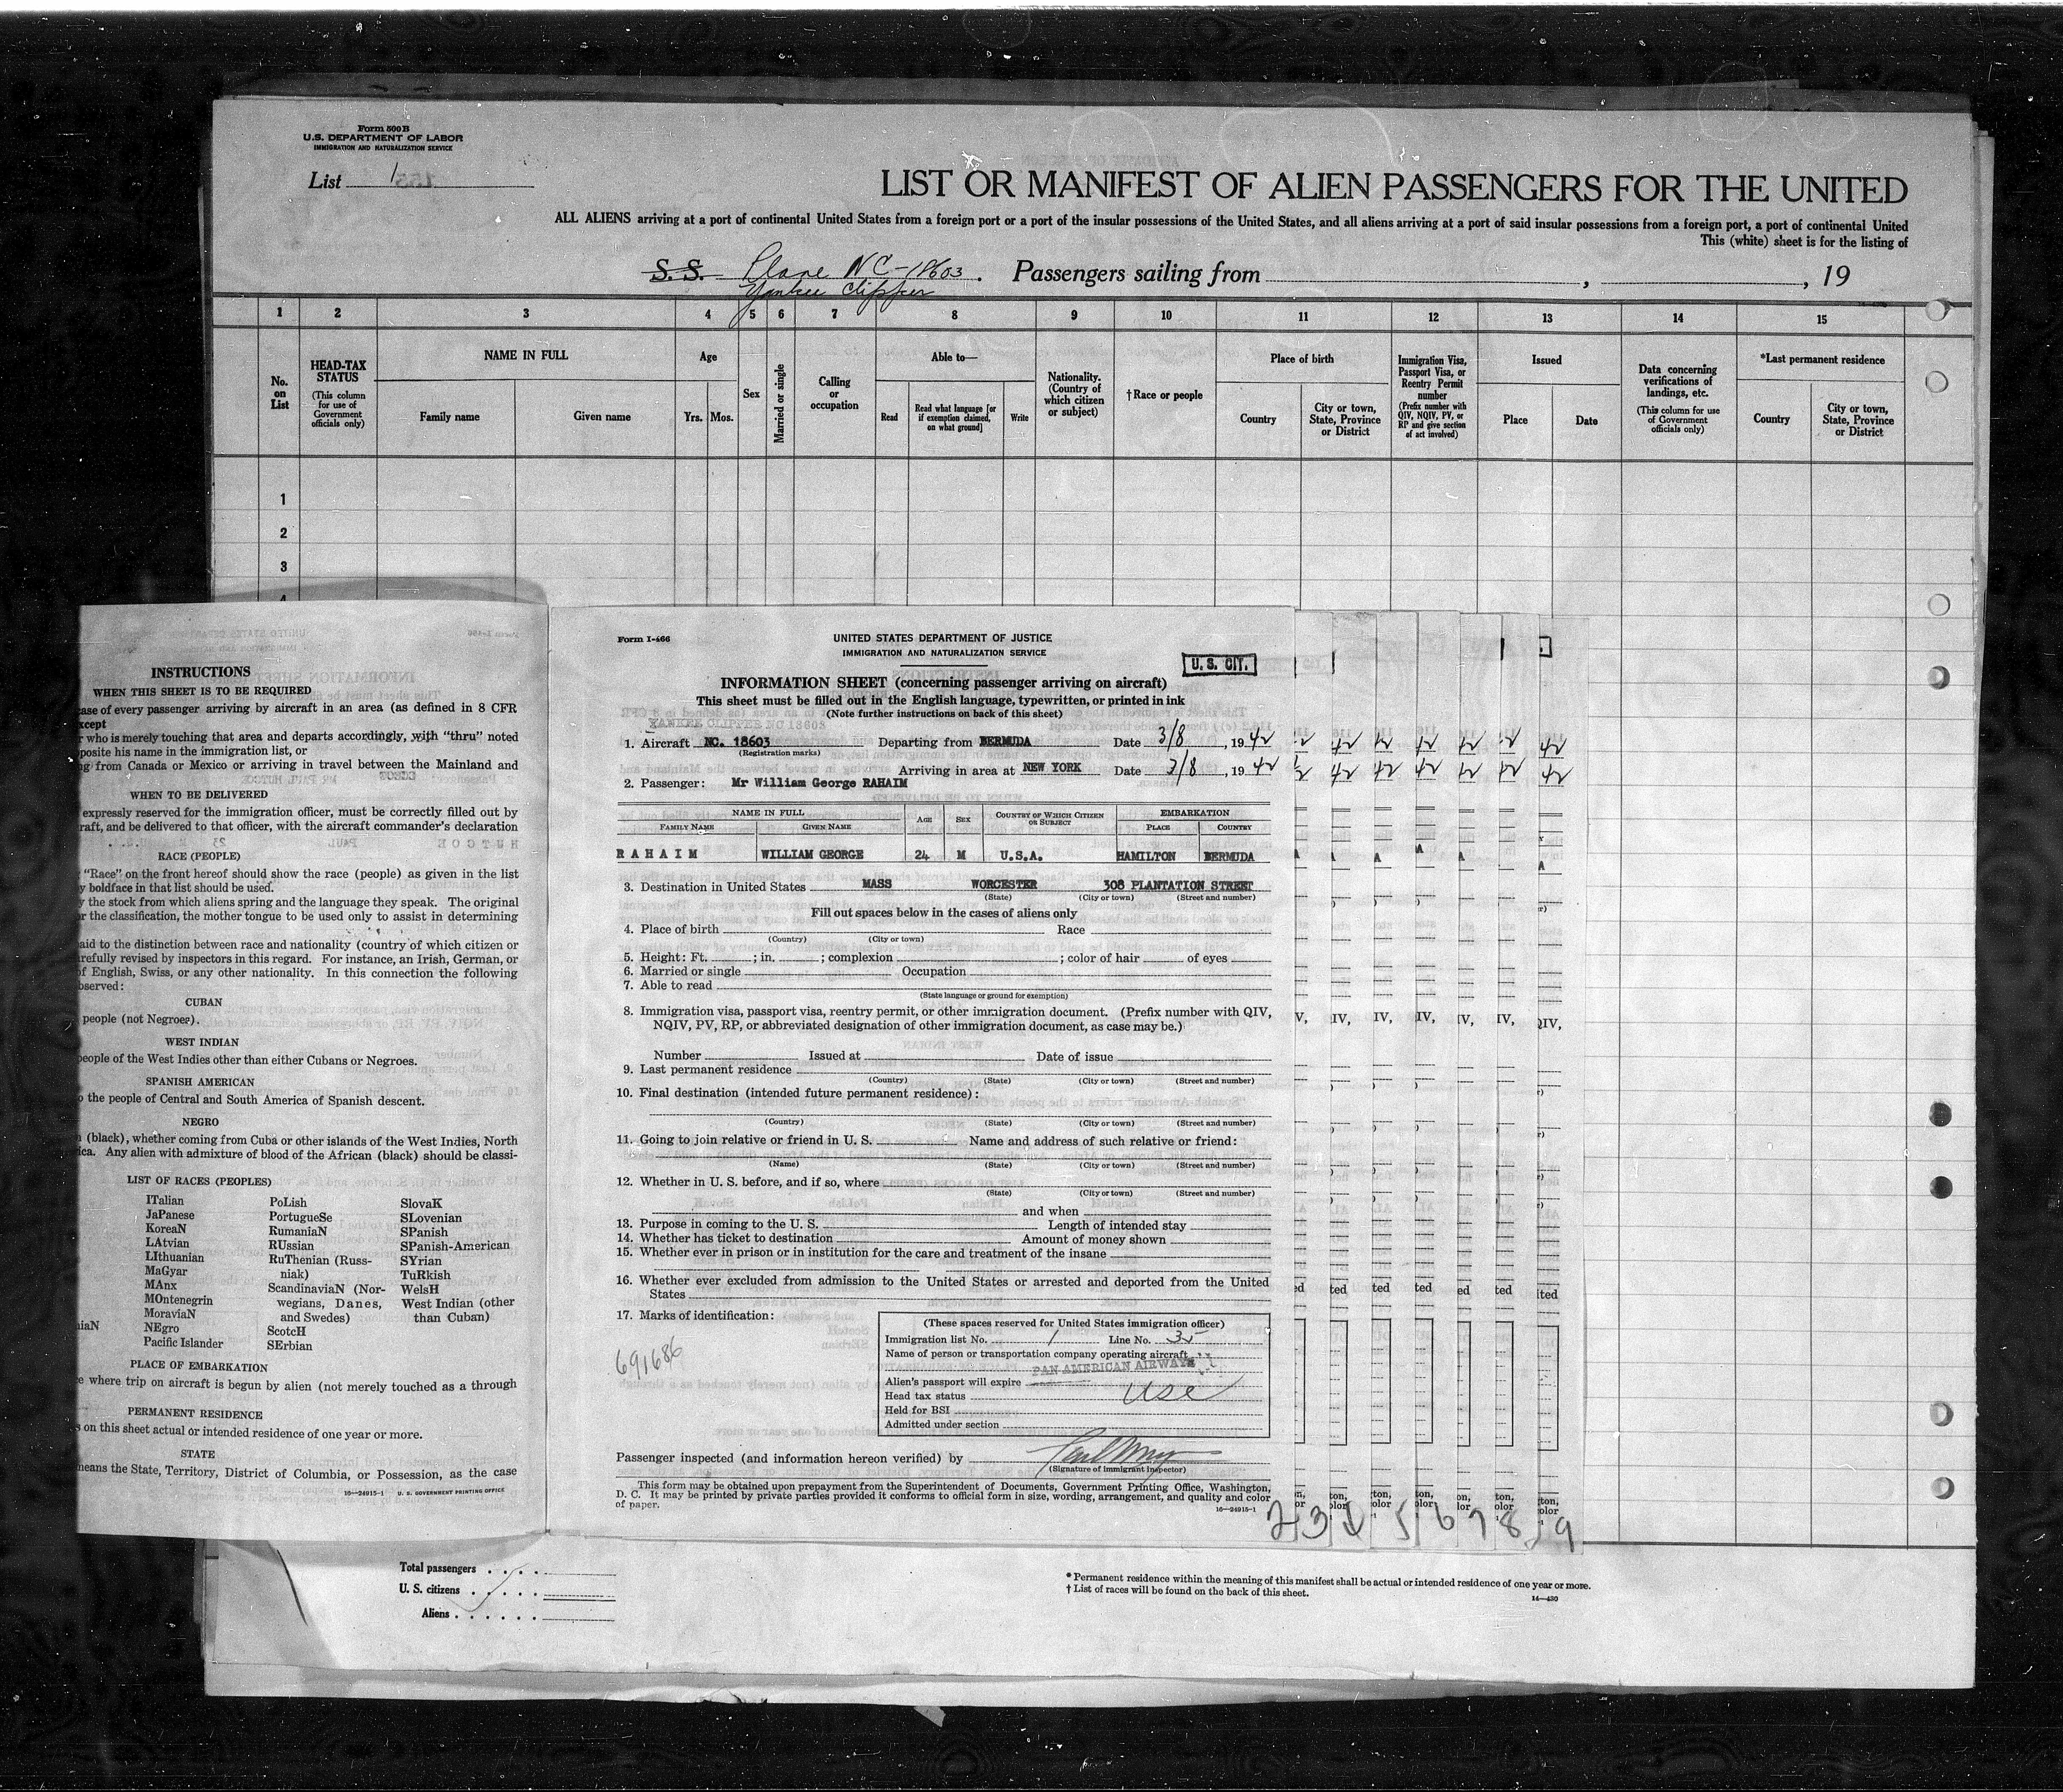 Form 500 B
U.S. DEPARTMENT OF LABOR
IMMIGRATION AND NATURALIZATION SERVICE
List 1
LIST OR MANIFEST OF ALIEN PASSENGERS FOR THE UNITED
ALL ALIENS arriving at a port of continental United States from a foreign port or a port of the insular possessions of the United States, and all aliens arriving at a port of said insular possessions from a foreign port, a port of continental United
This (white) sheet is for the listing of
S. S. Plane NC-18603. Passengers sailing from , , 19
Yankee Clipper
1 2 3 4 5 6 7 8 9 10 11 12 13 14 15
No. on List
HEAD-TAX STATUS (This column for use of Government officials only)
NAME IN FULL
Family name Given name
Age
Yrs. Mos.
Sex
Married or single
Calling or occupation
Able to—
Read
Read what language [or if exemption claimed, on what ground]
Write
Nationality. (Country of which citizen or subject)
†Race or people
Place of birth
Country
City or town, State, Province or District
Immigration Visa, Passport Visa, or Reentry Permit number (Prefix number with QIV, NQIV, PV, or RP and give section of act involved)
Issued
Place Date
Data concerning verifications of landings, etc. (This column for use of Government officials only)
*Last permanent residence
Country
City or town, State, Province or District
1
2
3
4
INSTRUCTIONS
WHEN THIS SHEET IS TO BE REQUIRED
ase of every passenger arriving by aircraft in an area (as defined in 8 CFR
xcept
r who is merely touching that area and departs accordingly, with "thru" noted
posite his name in the immigration list, or
g from Canada or Mexico or arriving in travel between the Mainland and
WHEN TO BE DELIVERED
expressly reserved for the immigration officer, must be correctly filled out by
raft, and be delivered to that officer, with the aircraft commander's declaration
RACE (PEOPLE)
"Race" on the front hereof should show the race (people) as given in the list
y boldface in that list should be used.
y the stock from which aliens spring and the language they speak. The original
r the classification, the mother tongue to be used only to assist in determining
aid to the distinction between race and nationality (country of which citizen or
refully revised by inspectors in this regard. For instance, an Irish, German, or
of English, Swiss, or any other nationality. In this connection the following
bserved:
CUBAN
people (not Negroes).
WEST INDIAN
people of the West Indies other than either Cubans or Negroes.
SPANISH AMERICAN
o the people of Central and South America of Spanish descent.
NEGRO
(black), whether coming from Cuba or other islands of the West Indies, North
ica. Any alien with admixture of blood of the African (black) should be classi-
LIST OF RACES (PEOPLES)
ITalian PoLish SlovaK
JaPanese PortugueSe SLovenian
KoreaN RumaniaN SPanish
LAtvian RUssian SPanish-American
LIthuanian RuThenian (Russ- SYrian
MaGyar niak) TuRkish
MAnx ScandinaviaN (Nor- WelsH
MOntenegrin wegians, Danes, West Indian (other
MoraviaN and Swedes) than Cuban)
niaN NEgro ScotcH
Pacific Islander SErbian
PLACE OF EMBARKATION
e where trip on aircraft is begun by alien (not merely touched as a through
PERMANENT RESIDENCE
s on this sheet actual or intended residence of one year or more.
STATE
means the State, Territory, District of Columbia, or Possession, as the case
16—24915-1 U. S. GOVERNMENT PRINTING OFFICE
Form I-466
UNITED STATES DEPARTMENT OF JUSTICE
IMMIGRATION AND NATURALIZATION SERVICE
U. S. CIT.
INFORMATION SHEET (concerning passenger arriving on aircraft)
This sheet must be filled out in the English language, typewritten, or printed in ink
(Note further instructions on back of this sheet)
YANKEE CLIPPER NC 18603
1. Aircraft NC. 18603 Departing from BERMUDA Date 3/8, 1942
(Registration marks)
Arriving in area at NEW YORK Date 3/8, 1942
2. Passenger: Mr William George RAHAIM
NAME IN FULL AGE SEX COUNTRY OF WHICH CITIZEN OR SUBJECT EMBARKATION
FAMILY NAME GIVEN NAME PLACE COUNTRY
RAHAIM WILLIAM GEORGE 24 M U.S.A. HAMILTON BERMUDA
3. Destination in United States MASS WORCESTER 308 PLANTATION STREET
(State) (City or town) (Street and number)
Fill out spaces below in the cases of aliens only
4. Place of birth Race
(Country) (City or town)
5. Height: Ft. ; in. ; complexion ; color of hair of eyes
6. Married or single Occupation
7. Able to read
(State language or ground for exemption)
8. Immigration visa, passport visa, reentry permit, or other immigration document. (Prefix number with QIV,
NQIV, PV, RP, or abbreviated designation of other immigration document, as case may be.)
Number Issued at Date of issue
9. Last permanent residence
(Country) (State) (City or town) (Street and number)
10. Final destination (intended future permanent residence):
(Country) (State) (City or town) (Street and number)
11. Going to join relative or friend in U. S. Name and address of such relative or friend:
(Name) (State) (City or town) (Street and number)
12. Whether in U. S. before, and if so, where
(State) (City or town) (Street and number)
and when
13. Purpose in coming to the U. S. Length of intended stay
14. Whether has ticket to destination Amount of money shown
15. Whether ever in prison or in institution for the care and treatment of the insane
16. Whether ever excluded from admission to the United States or arrested and deported from the United
States
17. Marks of identification:
691686
(These spaces reserved for United States immigration officer)
Immigration list No. 1 Line No. 35
Name of person or transportation company operating aircraft
PAN AMERICAN AIRWAYS
Alien's passport will expire
Head tax status USC
Held for BSI
Admitted under section
Passenger inspected (and information hereon verified) by
(Signature of immigrant inspector)
This form may be obtained upon prepayment from the Superintendent of Documents, Government Printing Office, Washington,
D. C. It may be printed by private parties provided it conforms to official form in size, wording, arrangement, and quality and color
of paper.
16—24915-1
2 3 4 5 6 7 8 9
Total passengers
U. S. citizens
Aliens
* Permanent residence within the meaning of this manifest shall be actual or intended residence of one year or more.
† List of races will be found on the back of this sheet.
14—430